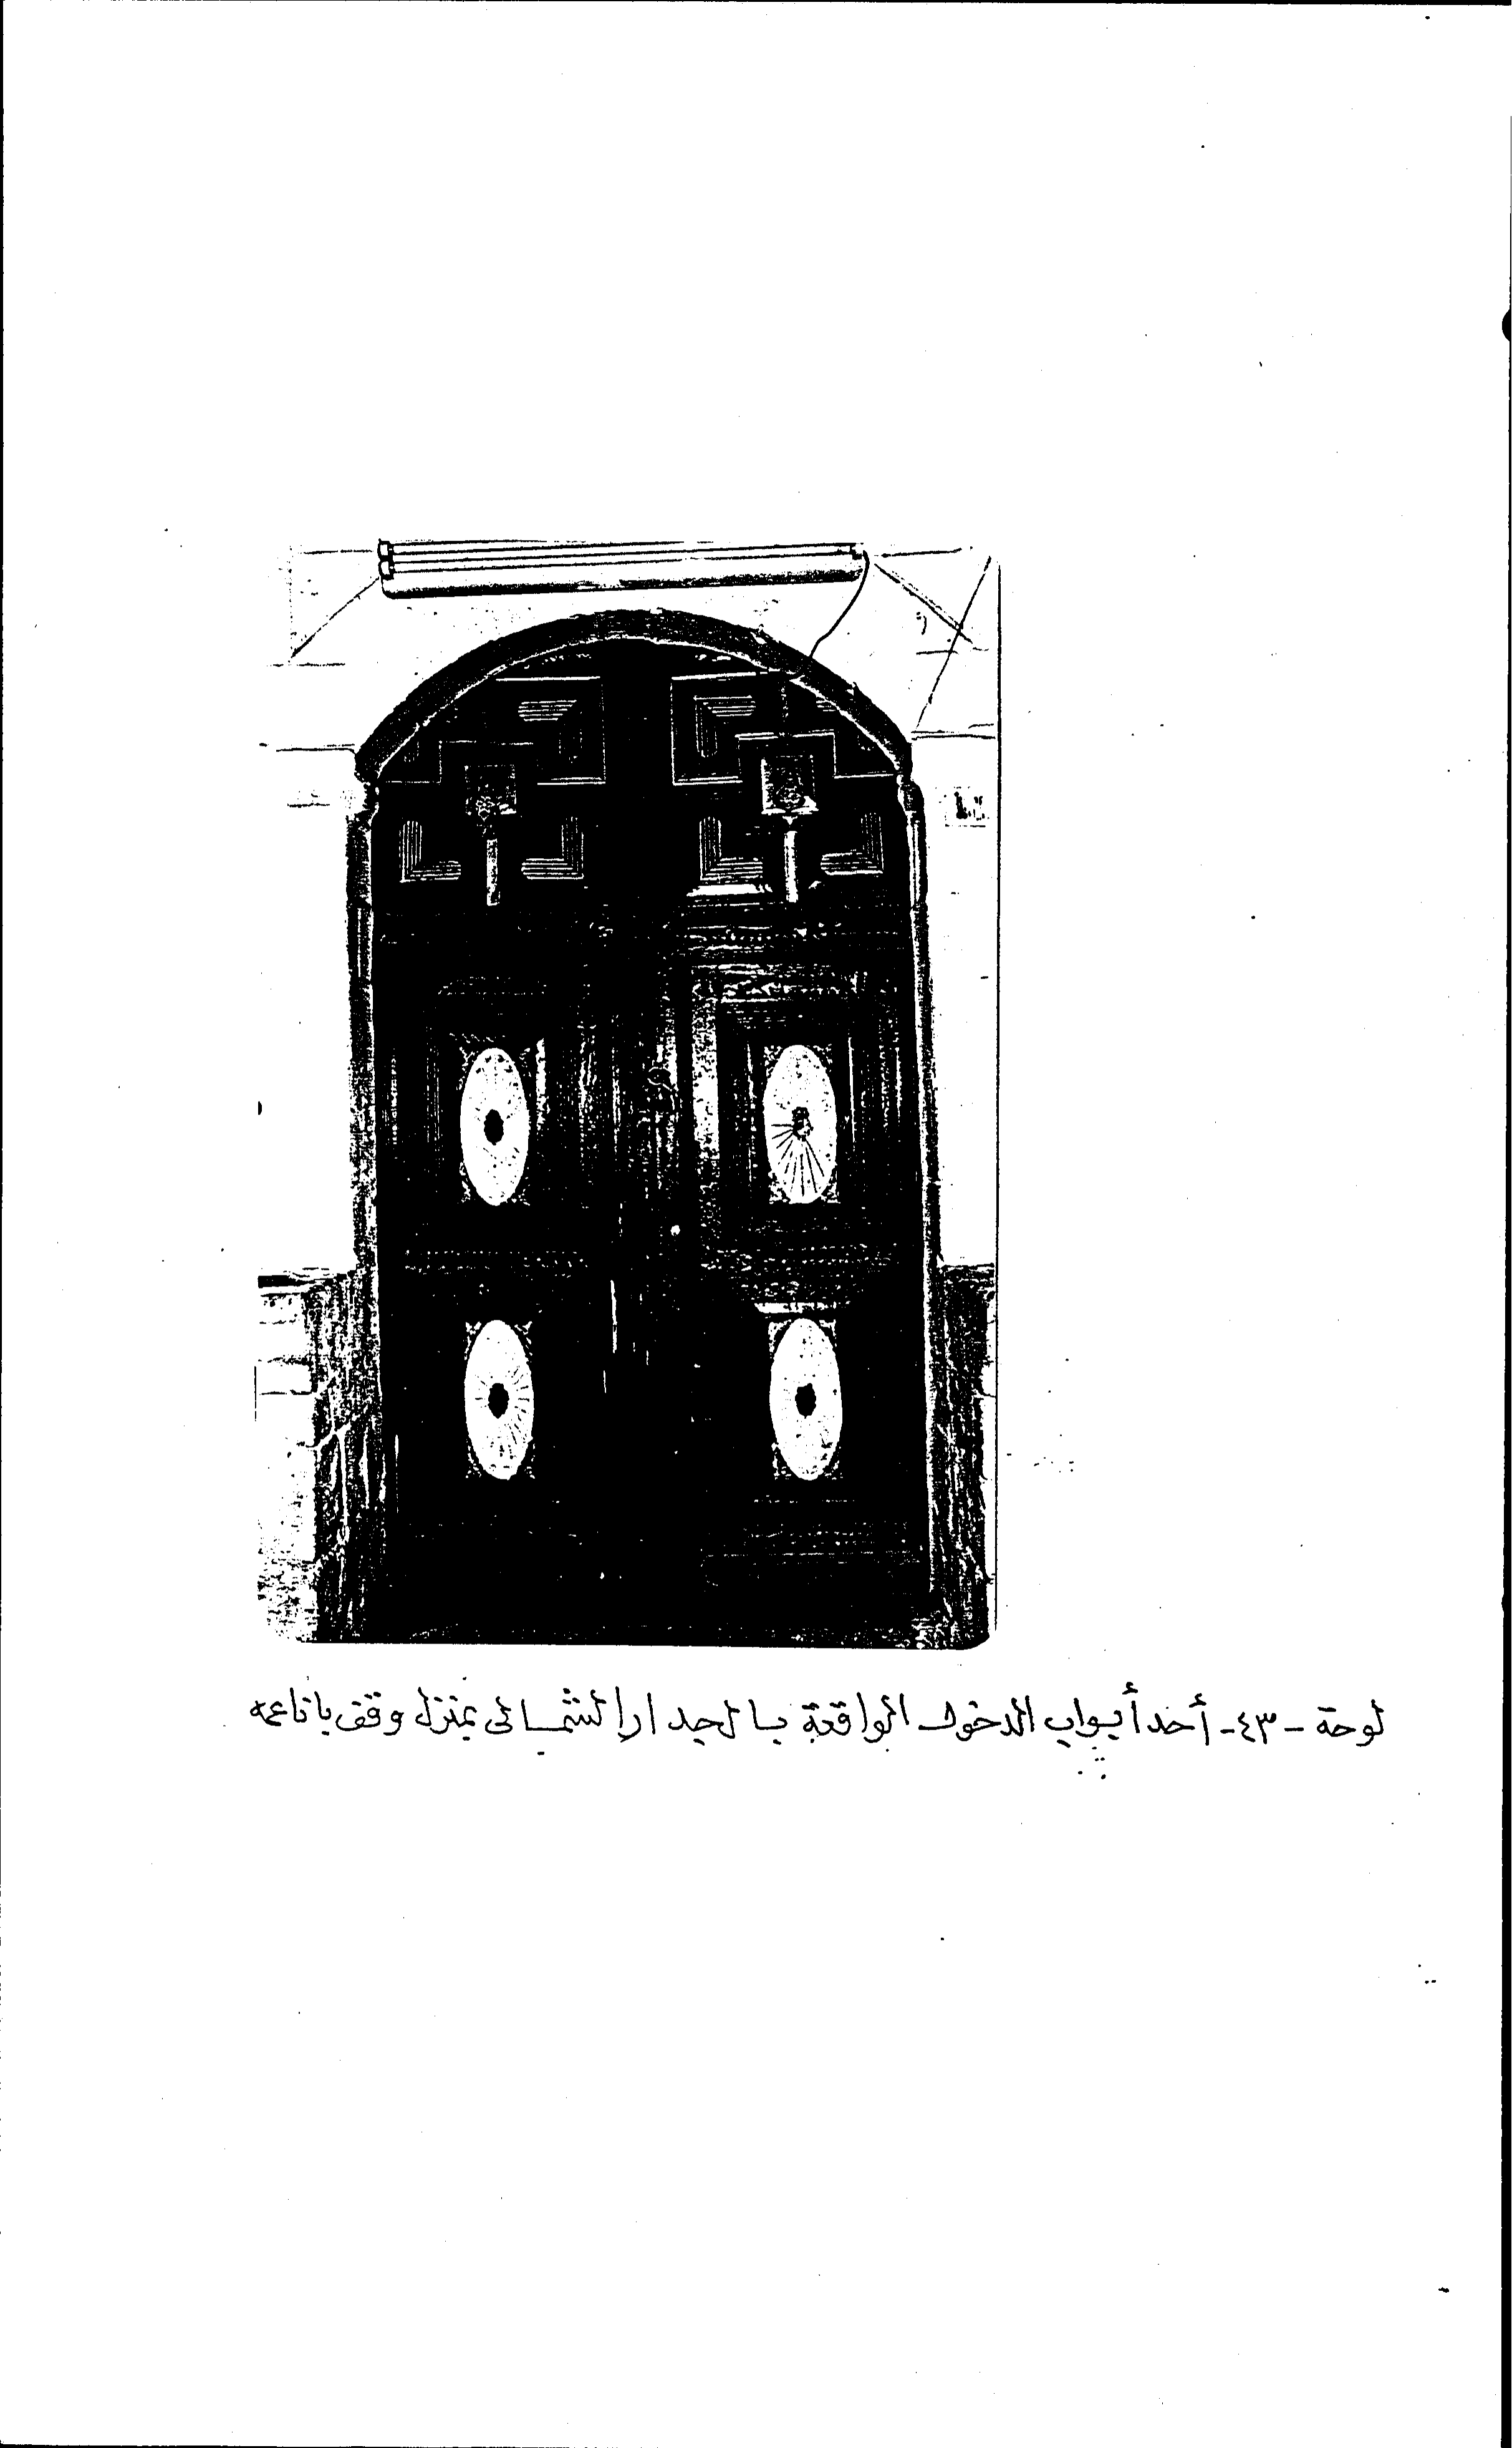 لوحة - ٤٣ - أحد أبواب الدخول الواقعة بالجدار الشمالى بمنزل وقف باناعمه